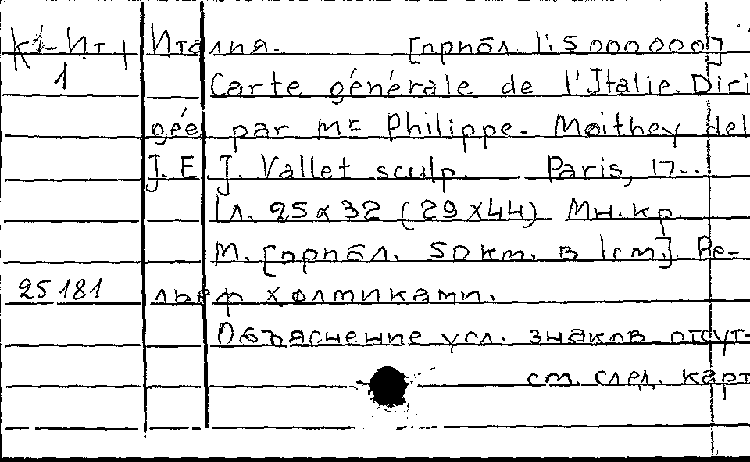 К1-Ит 1 Италия. [прибл. 1:5 000 000]
1 Carte générale de l'Italie. Diri
gée par Mr Philippe. Moithey del
J. E. J. Vallet sculp. Paris, 17..
1 л. 25x32 (29x44) Мн.кр
М. [прибл. 50 км. в 1 см.] Ре-
25181 льеф холмиками.
Объяснение усл. знаков отсут-
см. след. карт